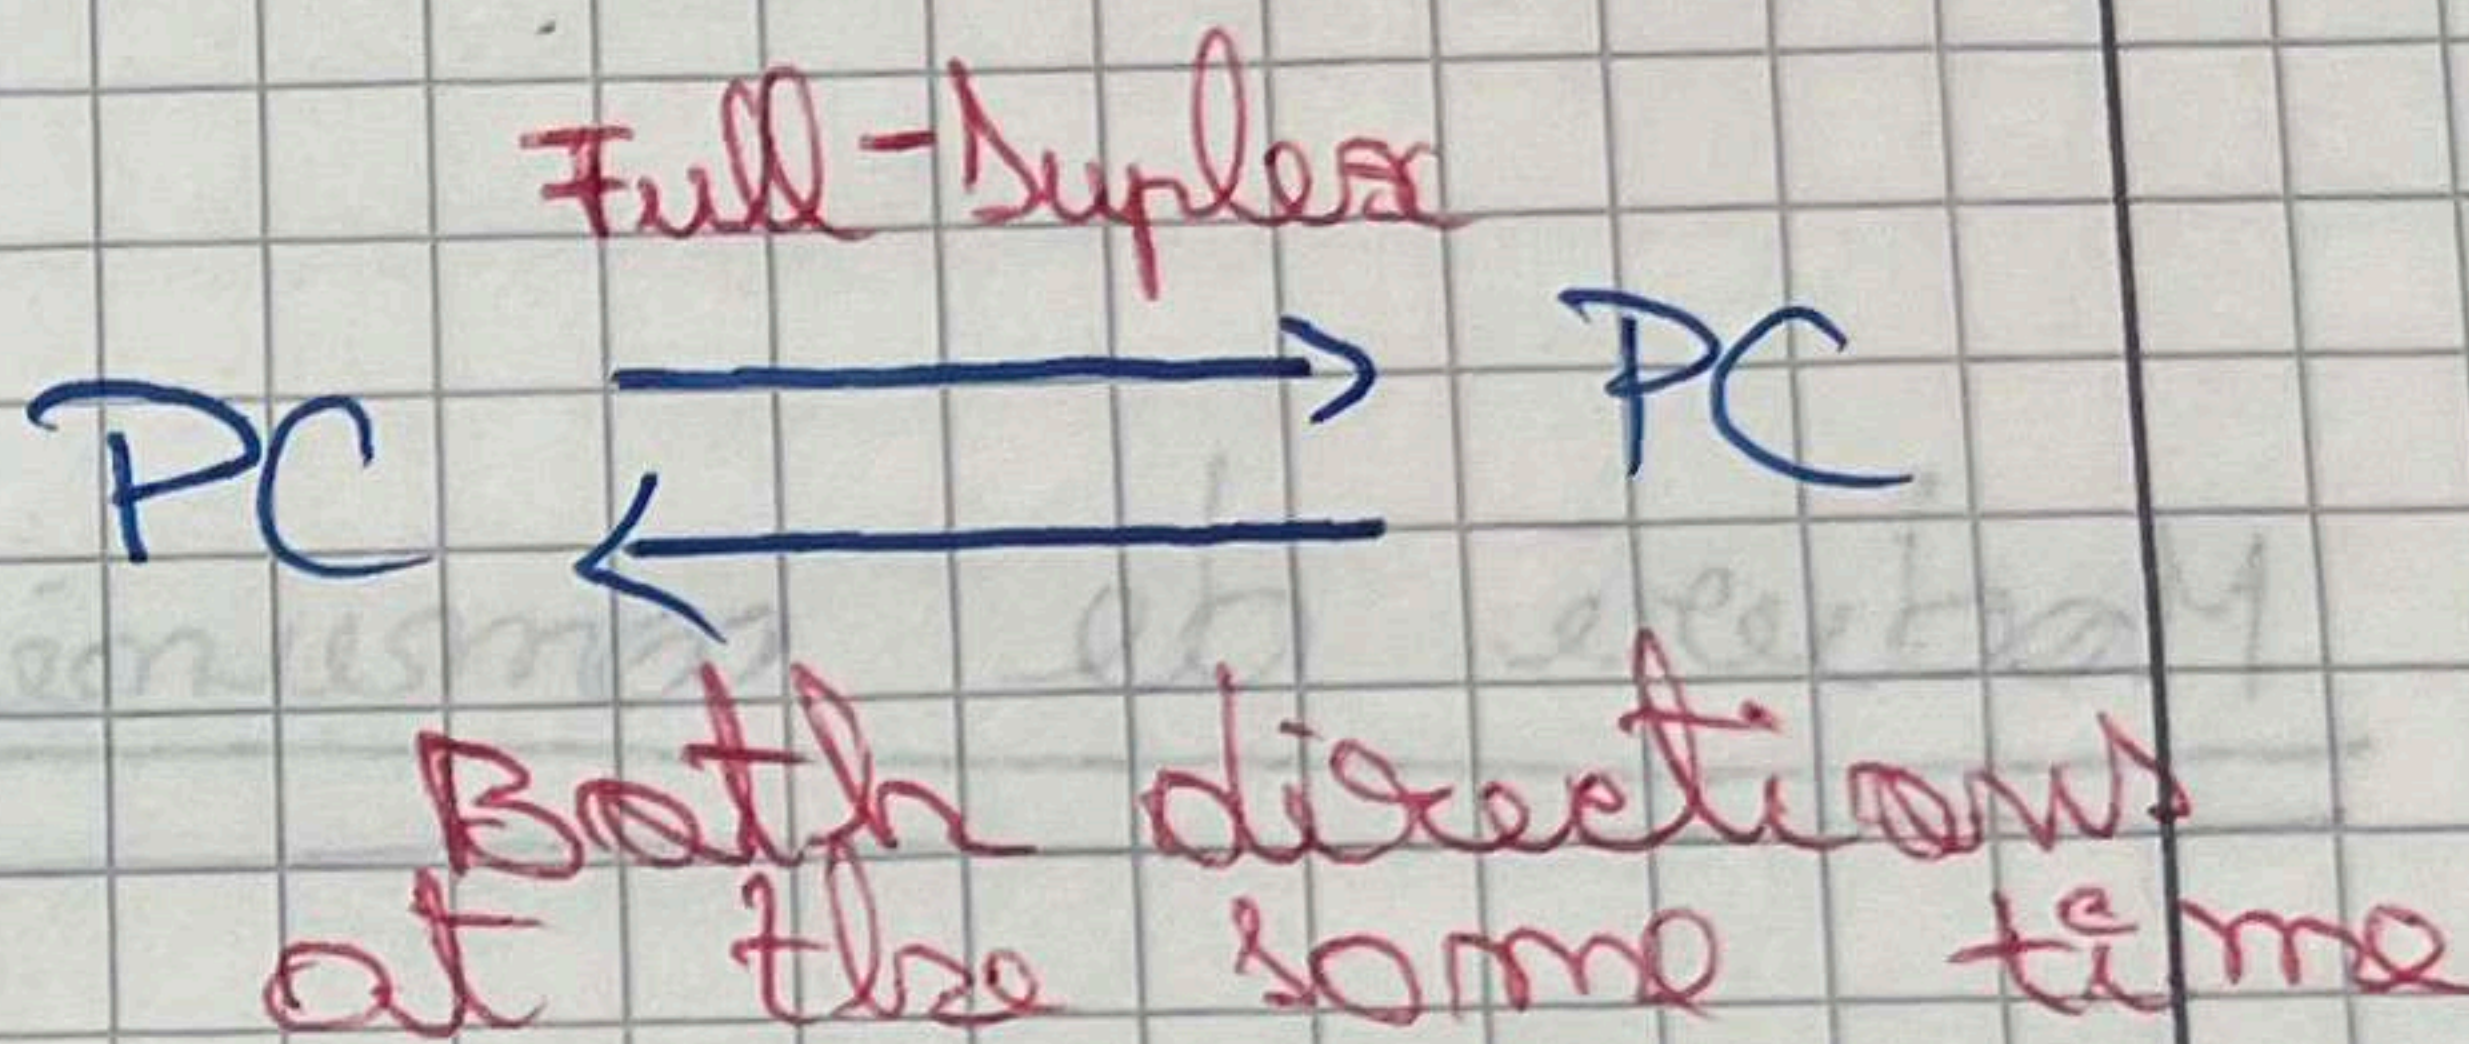 Full-Duplex
PC PC
Both directions
at the same time